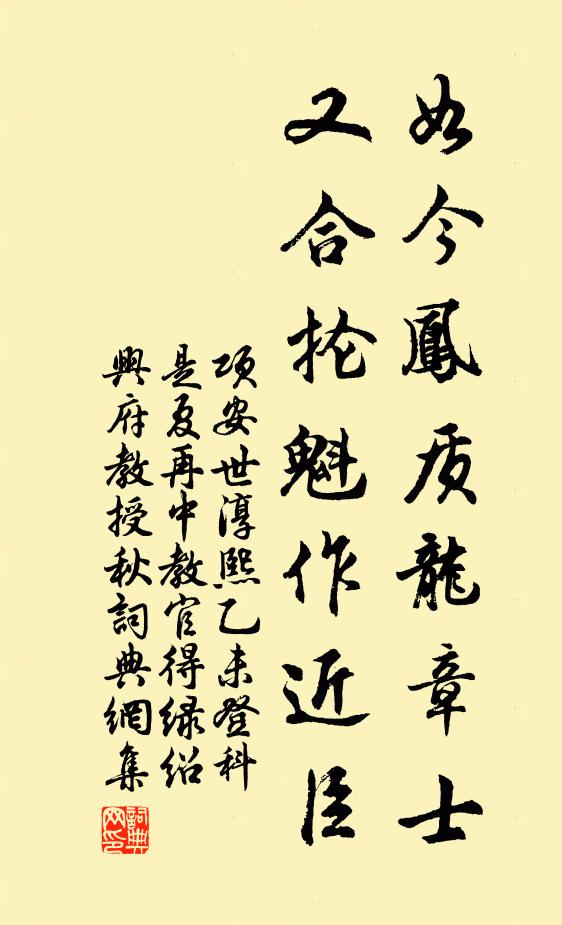 如今鳳质龍章士
又合抡魁作近臣
项安世淳熙乙未登科
是夏再中教官得绿绍
興府教授秋詞典網集
詞典网印